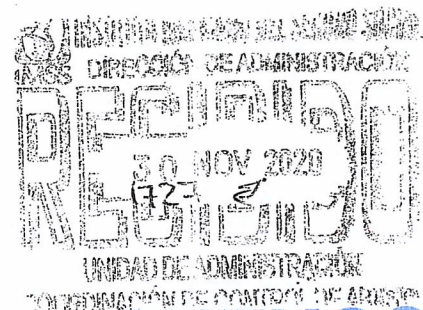 INSTITUTO MEXICANO DEL SEGURO SOCIAL
IMSS
DIRECCIÓN DE ADMINISTRACIÓN
RECIBIDO
30 NOV 2020
UNIDAD DE ADMINISTRACIÓN
COORDINACIÓN DE CONTROL DE ABASTO